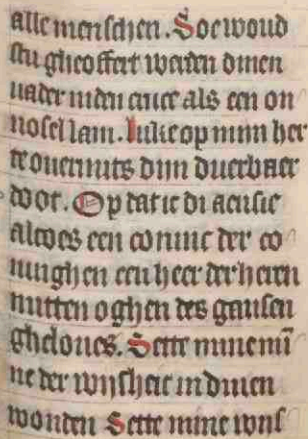 alle menschen. Soe woud
stu gheoffert werden dinen
vader inden cruce als een on
nosel lam. Luke op mijn her
te ouermits dijn duerbaer
doot. Op dat ic di aensie
alwes een coninc der co
ninghen een heer der heren
mitten oghen des gansen
gheloues. Sette mine min
ne der wijsheit in dinen
wonden Sette mine wijs